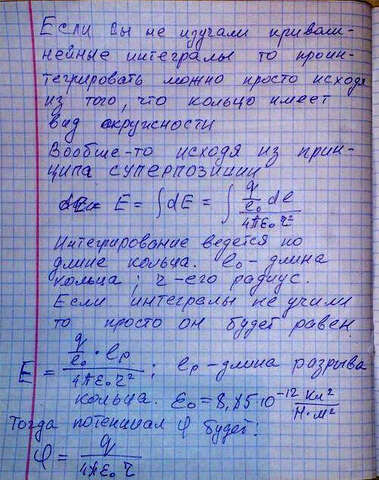 Если Вы не изучали кривали-
нейные интегралы то проин-
тегрировать можно просто исходя
из того, что кольцо имеет
вид окружности
Вообще-то исходя из прин-
ципа суперпозиции
E = ∫dE = ∫ (q/ℓ₀ dℓ)/(4πε₀r²)
Интегрирование ведется по
длине кольца. ℓ₀ - длина
кольца; r - его радиус.
Если интегралы не учили
то просто он будет равен
E = (q/ℓ₀ · ℓр)/(4πε₀r²); ℓр - длина разрыва
кольца. ε₀ = 8,85·10⁻¹² Кл²/Н·м²
Тогда потенциал φ будет:
φ = q/(4πε₀r)